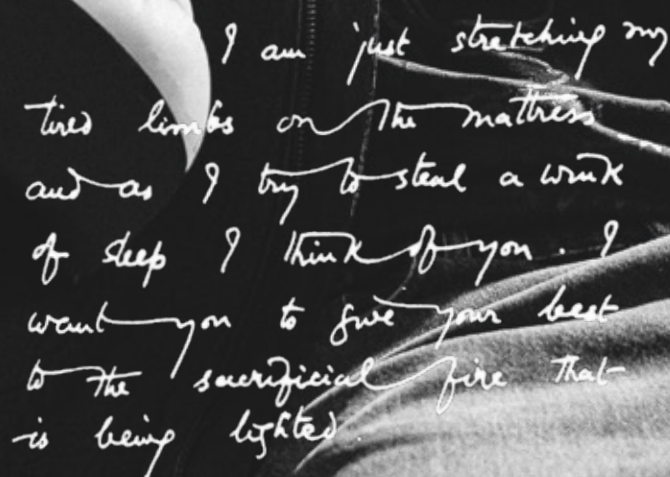 I am just stretching my
tired limbs on the mattress
and as I try to steal a wink
of sleep I think of you. I
want you to give your best
to the sacrificial fire that
is being lighted.